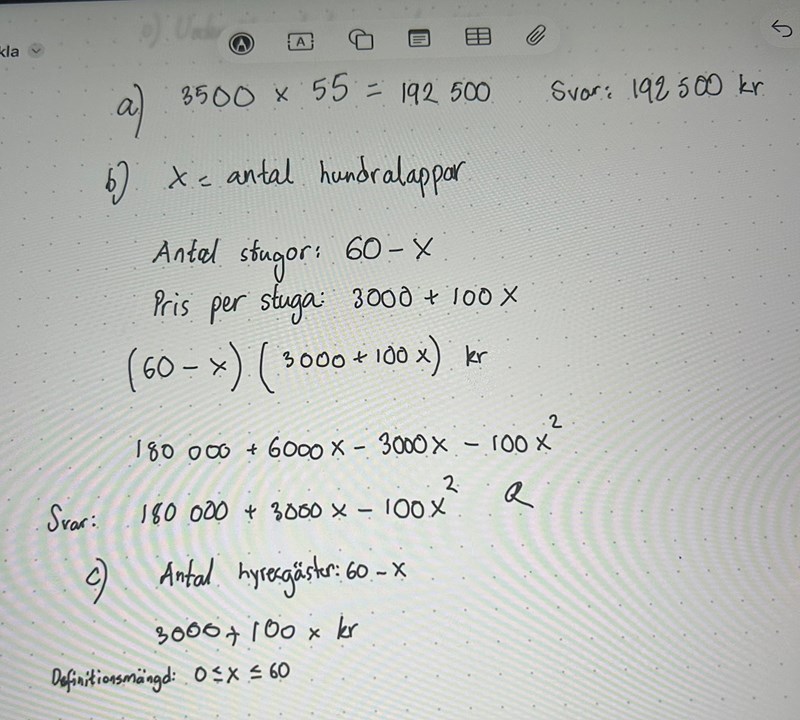 kla
a) 3500 × 55 = 192 500 Svar: 192 500 kr
b) x = antal hundralappar
Antal stugor: 60 - x
Pris per stuga: 3000 + 100 x
(60 - x) (3000 + 100 x) kr
180 000 + 6000 x - 3000x - 100 x²
Svar: 180 000 + 3000 x - 100x²
c) Antal hyresgäster: 60 - x
3000 + 100 x kr
Definitionsmängd: 0 ≤ x ≤ 60